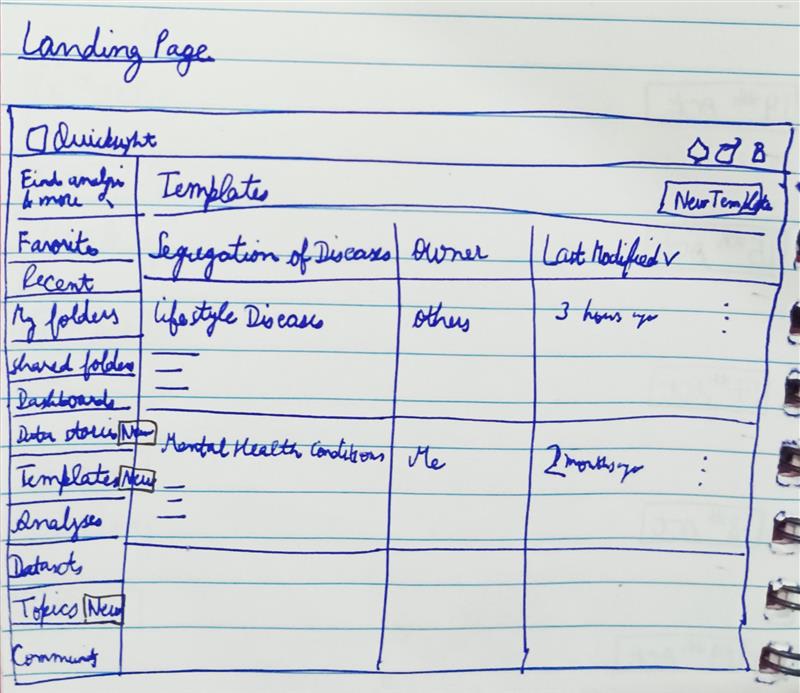 Landing Page
Quicksight
Find analysis
& more
Templates
New Template
Favorites
Segregation of Diseases
Owner
Last Modified
Recent
My folders
Lifestyle Diseases
others
3 hours ago
shared folders
Dashboards
Data stories New
Mental Health Conditions
Me
2 months ago
Templates New
Analyses
Datasets
Topics New
Community